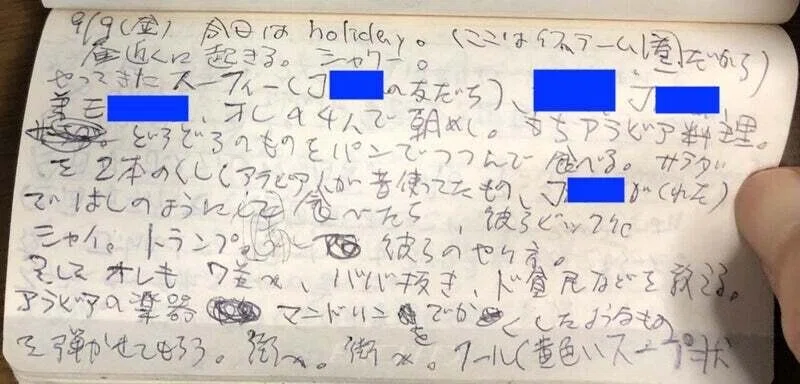 9/9(金) 今日は holiday。(ここはイスラーム圏だから)
昼近くに起きる。シャワー。
やってきたスーフィー(J の友だち)、 J
妻E 、オレの4人で朝めし。もちアラビア料理。
どろどろのものをパンでつつんで食べる。サラダ
を2本のくし(アラビア人が昔使ってたもの、J がくれた)
ではしのようにして食べたら、彼らビックリ。
シャイ。トランプ。 彼らのやり方。
そして オレも 、ババ抜き、ド貧民などを教える。
アラビアの楽器 マンドリンをでかくしたようなもの
を弾かせてもらう。街へ。街へ。フール(黄色いスープ状